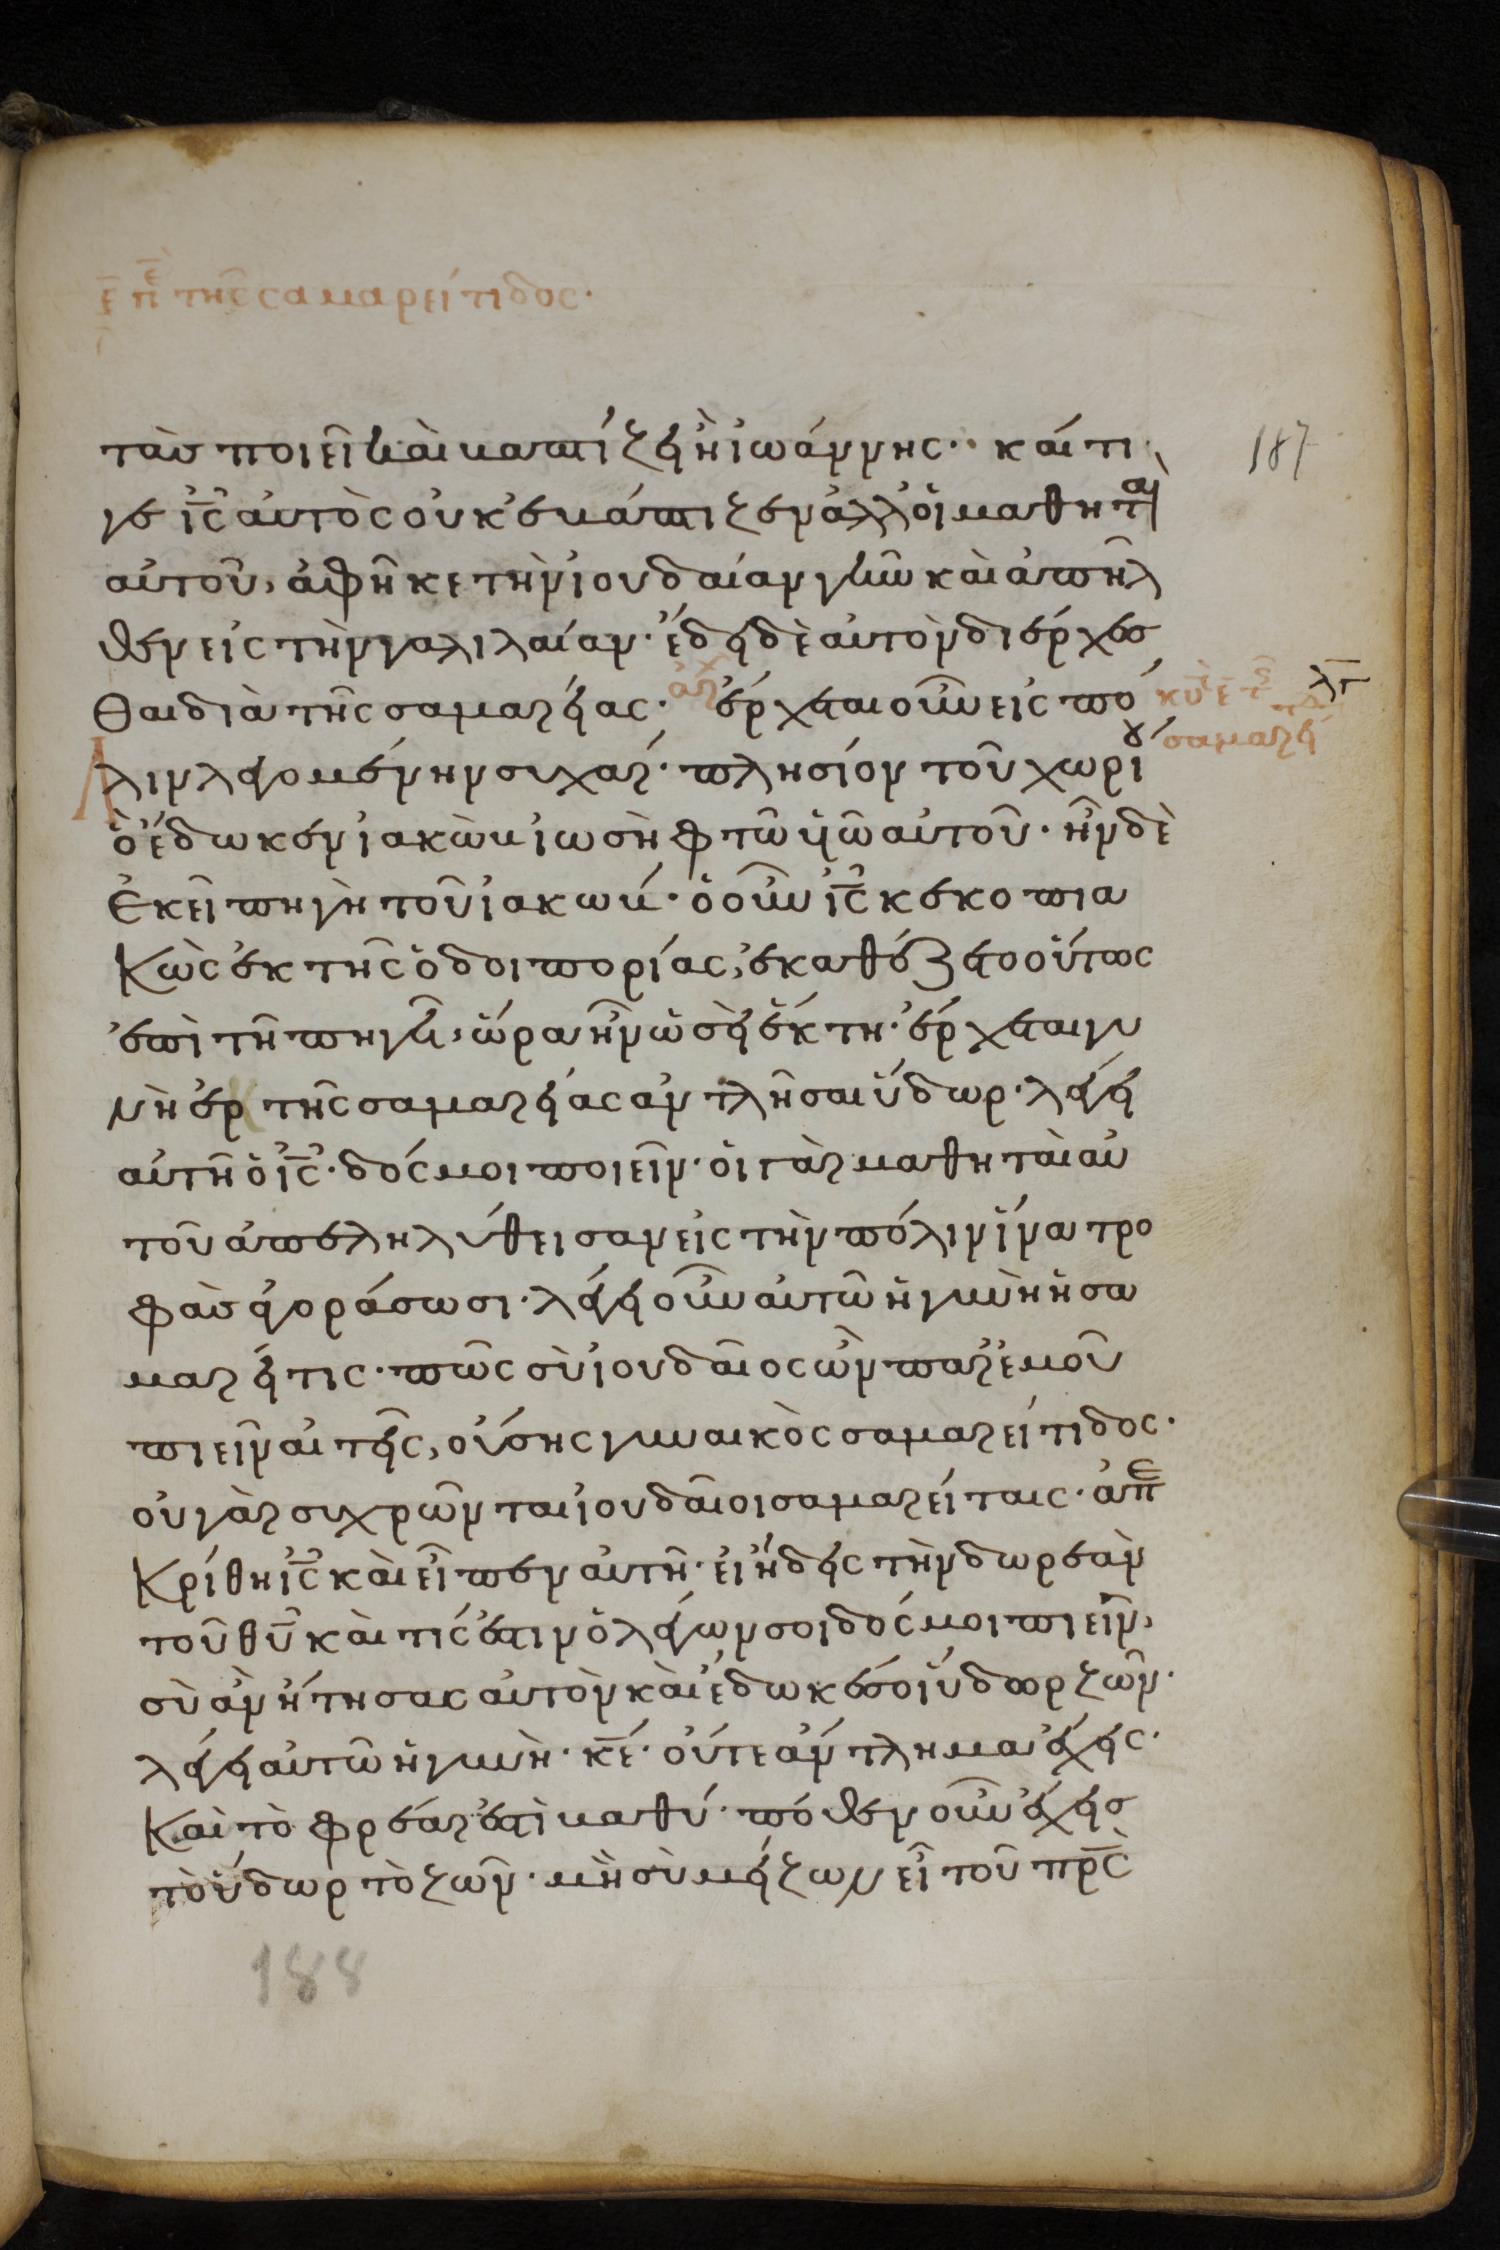 ε̅ πε̅ τῆς σαμαρείτιδος·
τὰσ ποιεῖ καὶ βαπτίζει ἢ ἰωάννης·· καίτι
187
γε ἰ̅ς̅ αὐτὸς οὐκ ἐβάπτιζεν ἀλλ' οἱ μαθηταὶ
αὐτοῦ, ἀφῆκε τὴν ἰουδαίαν γῆν καὶ ἀπῆλ
θεν εἰς τὴν γαλιλαίαν· ἔδει δὲ αὐτὸν διέρχεσ
θαι διὰ τῆς σαμαρείας· ἀρχ ἔρχεται οὖν εἰς πό
σαμαρεί
λιν λεγομένην συχαρ· πλησίον τοῦ χωρίου
ὃ ἔδωκεν ἰακὼβ ἰωσὴφ τῶ υἱῶ αὐτοῦ· ἦν δὲ
ἐκεῖ πηγὴ τοῦ ἰακώβ· ὁ οὖν ἰ̅ς̅ κεκοπια
κὼς ἐκ τῆς ὁδοιπορίας, ἐκαθέζετο οὕτως
ἐπὶ τῆ πηγῆ, ὥρα ἦν ὡσεὶ ἕκτη· ἔρχεται γυ
νὴ ἐκ τῆς σαμαρείας ἀντλῆσαι ὕδωρ· λέγει
αὐτῆ ὁ ἰ̅ς̅· δός μοι ποιεῖν· οἱ γὰρ μαθηταὶ αὐ
τοῦ ἀπεληλύθεισαν εἰς τὴν πόλιν ἵνα τρο
φὰσ ἀγοράσωσι· λέγει οὖν αὐτῶ ἡ γυνὴ ἡ σα
μαρεῖτις· πῶς σὺ ἰουδαῖος ὢν παρ' ἐμοῦ
πιεῖν αἰτεῖς, οὔσης γυναικὸς σαμαρείτιδος·
οὐ γὰρ συχρῶνται ἰουδαῖοι σαμαρείταις· ἀπε
κρίθη ἰ̅ς̅ καὶ εἶπεν αὐτῆ· εἰ ἤδεις τὴν δωρεὰν
τοῦ θ̅υ̅ καὶ τίς ἐστιν ὁ λέγων σοι δός μοι πιεῖν,
σὺ ἂν ἤτησας αὐτὸν καὶ ἔδωκέ σοι ὕδωρ ζῶν·
λέγει αὐτῶ ἡ γυνὴ· κ̅ε̅· οὔτε ἄντλημα ἔχεις·
καὶ τὸ φρέαρ ἐστὶ βαθύ· πόθεν οὖν ἔχεισ
τὸ ὕδωρ τὸ ζῶν· μὴ σὺ μείζων εἶ τοῦ π̅ρ̅ς̅
188